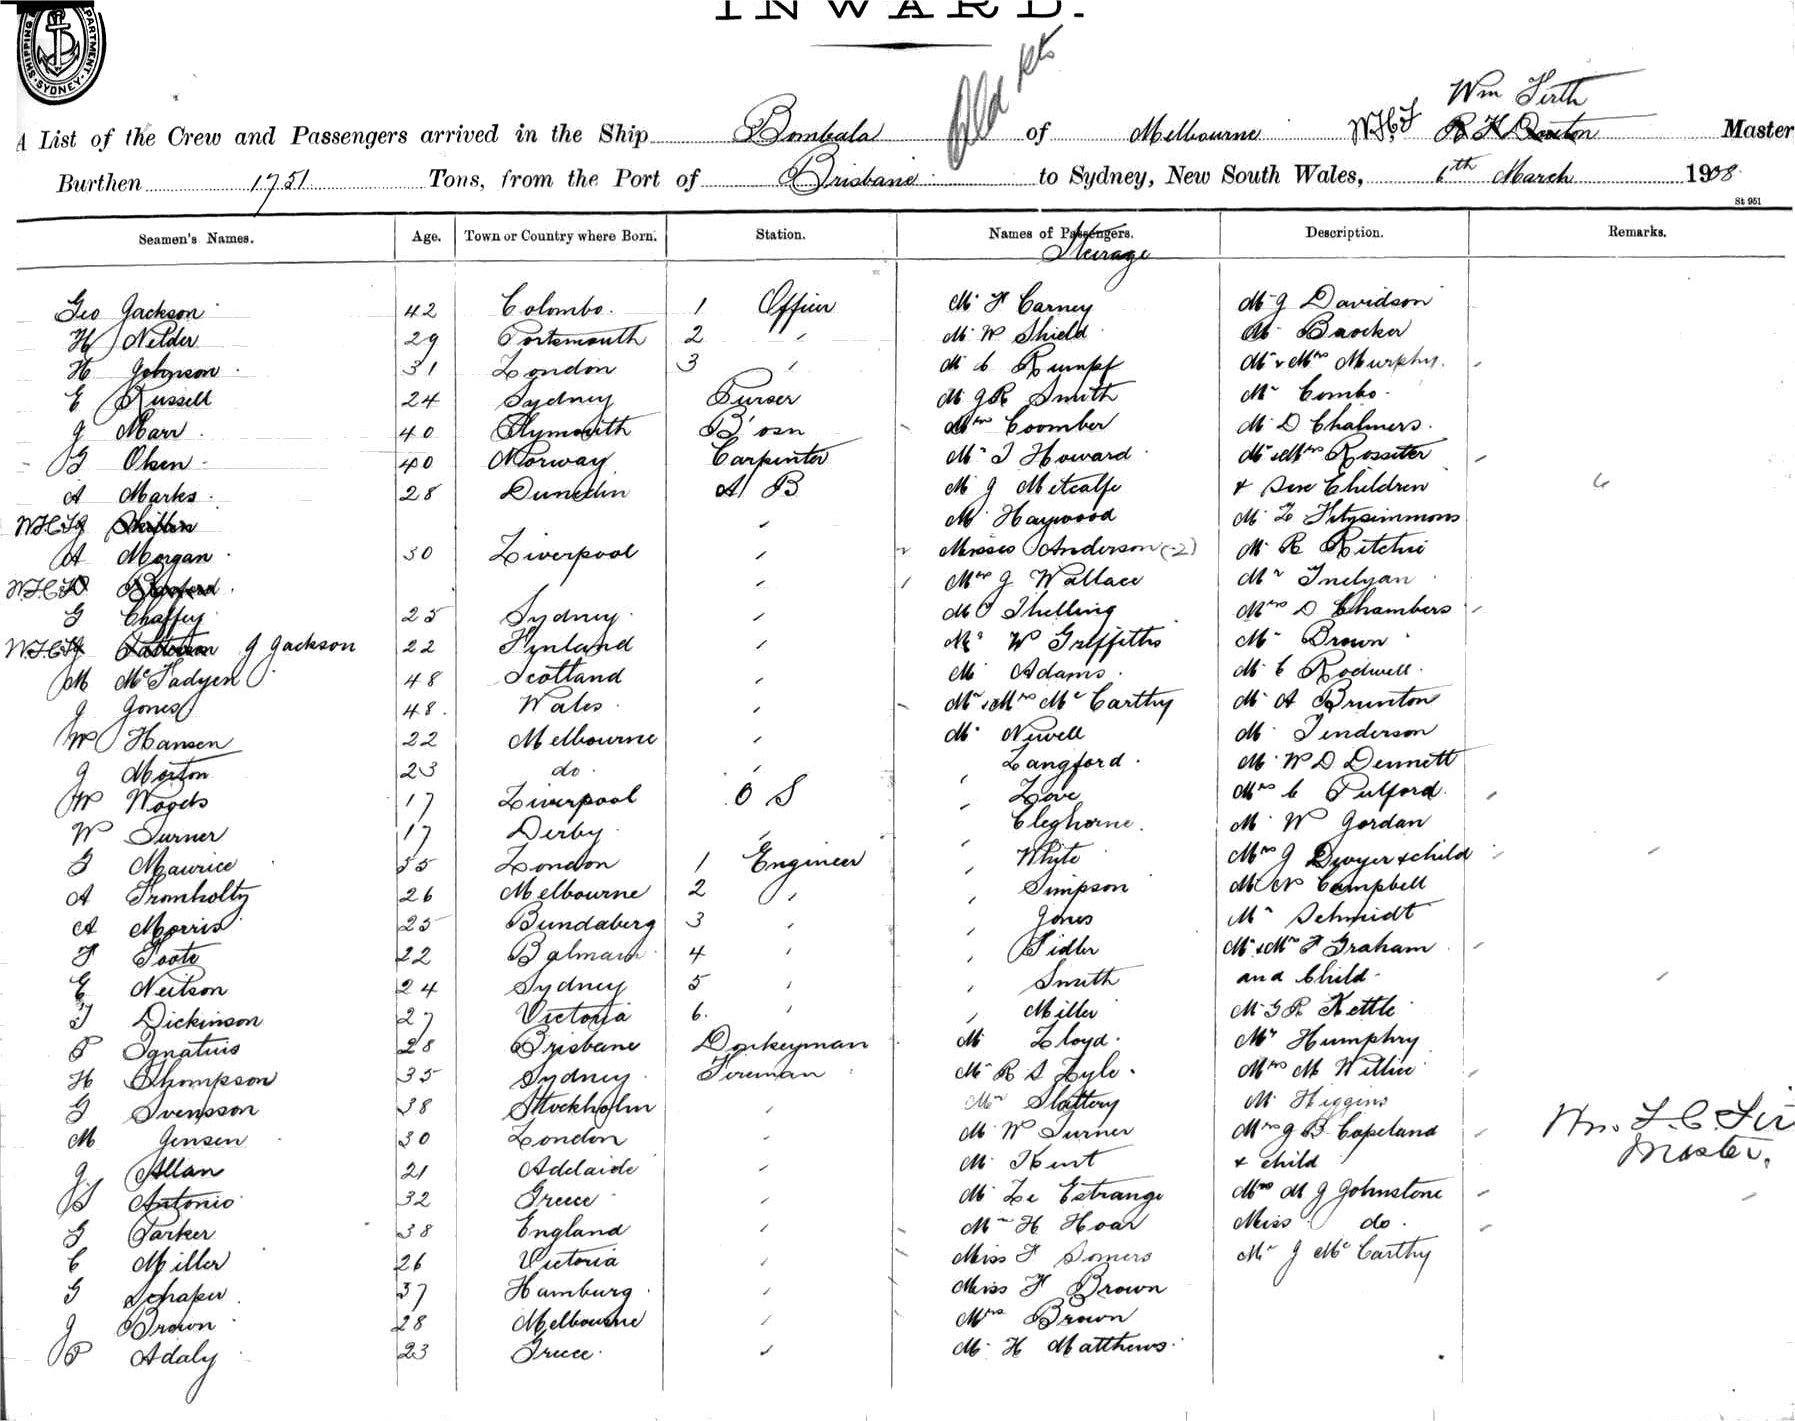 INWARD.
SHIPPING DEPARTMENT. SYDNEY.
Wm Firth
A List of the Crew and Passengers arrived in the Ship Bombala of Melbourne W.H.F Master
Burthen 1751 Tons, from the Port of Brisbane to Sydney, New South Wales, 6th March 1908
St 951
Seamen's Names. Age. Town or Country where Born. Station. Names of Passengers. Description. Remarks.
Steerage
Geo Jackson 42 Colombo. 1 Officer Mr F Carney Mr J Davidson
H Nelder 29 Portsmouth 2 " Mr W Shield Mr Barker
H Johnson 31 London 3 " Mr C Rumpf Mr & Mrs Murphy.
E Russell 24 Sydney Purser Mr J R Smith Mr Combo
J Marr 40 Plymouth B'osn Mrs Coomber Mr D Chalmers.
G Olsen 40 Norway Carpenter Mr T Howard Mr & Mrs Rossiter
A Marks 28 Dunedin A B Mr J Metcalfe & Children 6
" Mr Haywood Mr L Fitzsimmons
A Morgan 30 Liverpool " Misses Anderson (2) Mr R Ritchie
" Mrs J Wallace Mr
G Chaffey 25 Sydney " Mr Shelling Mrs D Chambers
J Jackson 22 Finland " Mr W Griffiths Mr Brown
M McFadyen 48 Scotland " Mr Adams Mr C Rodwell
J Jones 48 Wales " Mr & Mrs McCarthy Mr A Brunton
W Hansen 22 Melbourne " Mr Newell Mr Henderson
J Morton 23 do " " Langford Mr W D Dennett
W 17 Liverpool O S " Love Mrs C Pulford
W Turner 17 Derby " " Cleghorne. Mr W Gordan
G Maurice 35 London 1 Engineer " Whyte Mrs J Dwyer & child
A Tromholtz 26 Melbourne 2 " " Simpson Mr N Campbell
A Morris 25 Bundaberg 3 " " Jones Mr Schmidt
F Foote 22 Balmain 4 " " Sidler Mr & Mrs F Graham
E Neilson 24 Sydney 5 " " Smith and Child
T Dickinson 27 Victoria 6. " " Miller Mr G R Kettle
P Ignatius 28 Brisbane Donkeyman Mr Lloyd Mr Humphry
H Thompson 35 Sydney Fireman Mr R S Lyle Mrs M Willie
G Svensson 38 Stockholm " Mr Slattery Mr Higgins
M Jensen 30 London " Mr W Turner Mrs J B Copeland
J Allan 21 Adelaide " Mr Kent & child
S Antonio 32 Greece " Mr Le Estrange Mrs M J Johnstone
G Parker 38 England " Mr H Hoar Miss do.
C Miller 26 Victoria " Miss F Somers Mr J McCarthy
G Schaper 37 Hamburg " Miss F Brown
J Brown 28 Melbourne " Mrs Brown
P Adaly 23 Greece " Mr H Matthews
Wm. F. C. Fir
Master.